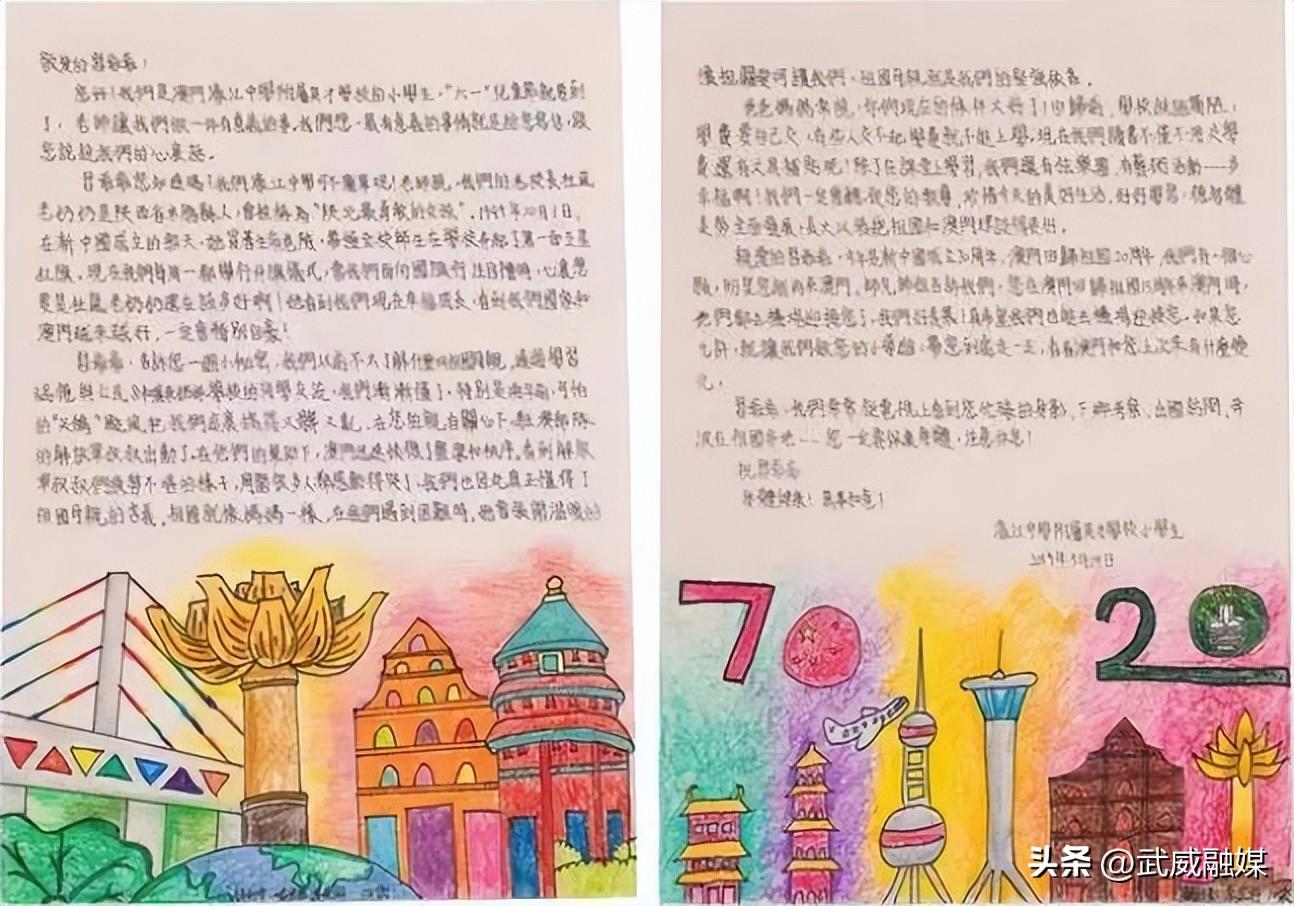 敬愛的習爺爺：
您好！我們是澳門濠江中學附屬英才學校的小學生，"六一"兒童節就要到
了，老師讓我們做一件有意義的事，我們想，最有意義的事情就是給您寫信，跟
您說說我們的心裏話。
習爺爺您知道嗎？我們濠江中學可不簡單呢！老師說，我們的老校長杜嵐
老奶奶是陝西省米脂縣人，曾被稱為"陝北最勇敢的女孩"，1949年10月1日，
在新中國成立的那天，她冒着生命危險，帶領全校師生在學校升起了第一面五星
紅旗，現在我們每周一都舉行升旗儀式，當我們面向國旗行注目禮時，心裏想
要是杜嵐老奶奶還在該多好啊！她看到我們現在幸福成長，看到我們國家和
澳門越來越好，一定會特別自豪！
習爺爺，告訴您一個小秘密，我們以前不太了解什麼叫祖國母親，通過學習
學校的同學交流，我們漸漸懂了，特別是兩年前，可怕
的"天鴿"颱風，把我們這裏搞得又髒又亂，在您的親自關心下，駐澳部隊
的解放軍叔叔出動了，在他們的幫助下，澳門迅速恢復了整潔和秩序，看到解放
軍叔叔們疲勞不堪的樣子，周圍很多人都感動得哭了，我們也因此真正懂得了
祖國母親的含義，祖國就像媽媽一樣，在我們遇到困難時，她會張開溫暖的
懷抱 呵護我們，祖國母親就是我們的堅強依靠。
爸爸媽媽常說，你們現在的條件太好了！回歸前，學校設施簡陋，
學費要自己交，有些人交不起學費就不能上學，現在我們讀書不僅不用交學
費還有文具補貼呢！除了在課堂上學習，我們還有弦樂團，有藝術活動……多
幸福啊！我們一定會聽從您的教導，珍惜今天的美好生活，好好學習，德智體
美勞全面發展，長大以後把祖國和澳門建設得更好。
親愛的習爺爺，今年是新中國成立70周年，澳門回歸祖國20周年，我們有一個心
願，盼望您能再來澳門。師兄師姐告訴我們，您在澳門回歸祖國15周年來澳門時，
他們都去機場迎接您了，我們好羨慕！真希望我們也能去機場迎接您，如果您
允許，就讓我們做您的小導遊，帶您到處走一走，看看澳門和您上次來有什麼變
化。
習爺爺，我們常常從電視上看到您忙碌的身影，下鄉考察、出國訪問、奔
波在祖國各地……您一定要保重身體，注意休息！
祝習爺爺
身體健康！萬事如意！
濠江中學附屬英才學校小學生
2019年5月
70
20
头条 @武威融媒